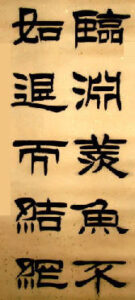 臨淵羨魚不
如退而結網